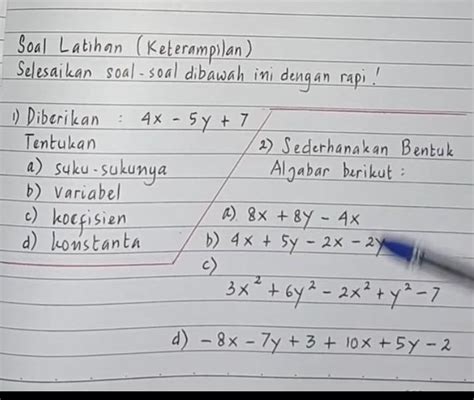 Soal Latihan (Keterampilan)
Selesaikan soal-soal dibawah ini dengan rapi!
1) Diberikan : 4x - 5y + 7
Tentukan
a) suku-sukunya
b) variabel
c) koefisien
d) konstanta
2) Sederhanakan Bentuk
Aljabar berikut :
a) 8x + 8y - 4x
b) 4x + 5y - 2x - 2y
c)
3x² + 6y² - 2x² + y² - 7
d) -8x - 7y + 3 + 10x + 5y - 2